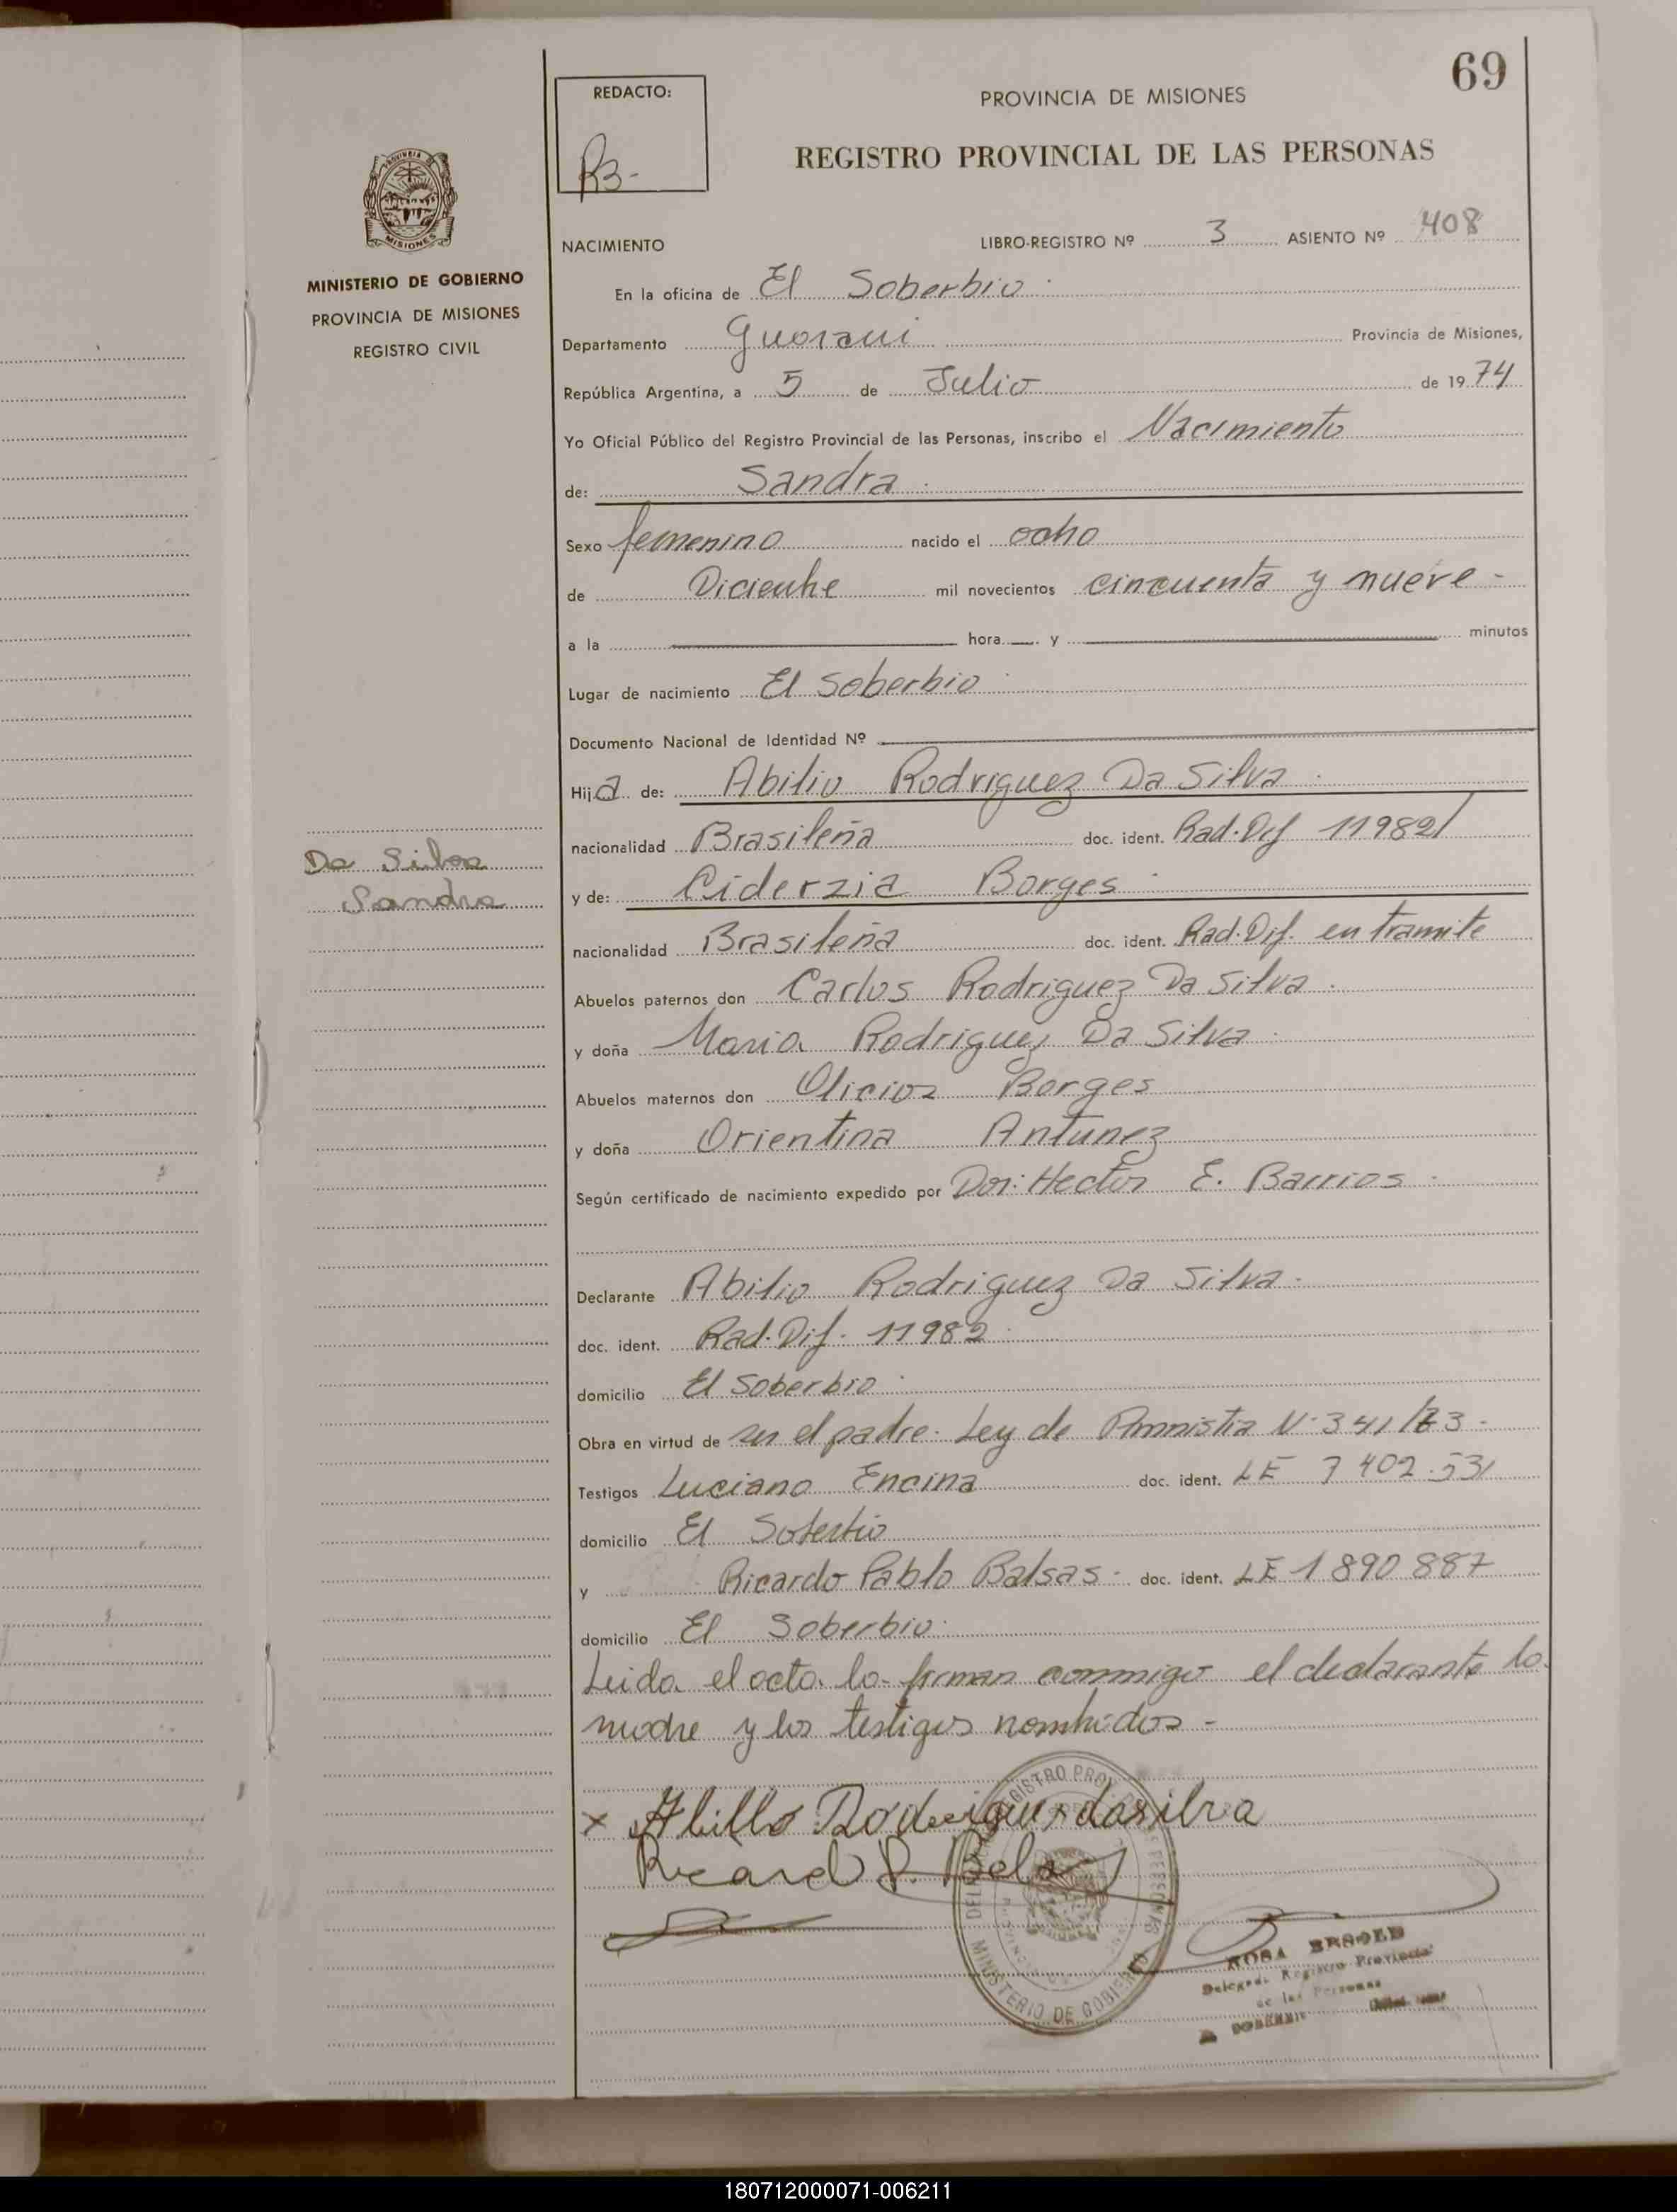 69
REDACTO:
PROVINCIA DE MISIONES
REGISTRO PROVINCIAL DE LAS PERSONAS
PROVINCIA DE
MISIONES
MINISTERIO DE GOBIERNO
PROVINCIA DE MISIONES
REGISTRO CIVIL
NACIMIENTO LIBRO-REGISTRO Nº 3 ASIENTO Nº 408
En la oficina de El Soberbio
Departamento Guarani Provincia de Misiones,
República Argentina, a 5 de Julio de 1974
Yo Oficial Público del Registro Provincial de las Personas, inscribo el Nacimiento
de: Sandra
Sexo femenino nacido el ocho
de Diciembre mil novecientos cincuenta y nueve -
a la hora y minutos
Lugar de nacimiento El Soberbio
Documento Nacional de Identidad Nº
Hija de: Abilio Rodriguez Da Silva
nacionalidad Brasileña doc. ident. Rad. Dif 11982/
Da Silva
Sandra
y de: Ciderzia Borges
nacionalidad Brasileña doc. ident. Rad. Dif. en tramite
Abuelos paternos don Carlos Rodriguez Da Silva
y doña Maria Rodriguez Da Silva
Abuelos maternos don Borges
y doña Orientina Antunez
Según certificado de nacimiento expedido por Dor: Hector E. Barrios
Declarante Abilio Rodriguez Da Silva
doc. ident. Rad. Dif. 11982
domicilio El Soberbio
Obra en virtud de ser el padre. Ley de Amnistia Nº 341/73 -
Testigos Luciano Encina doc. ident. LE 7 402.531
domicilio El Soberbio
y Ricardo Pablo Balsas - doc. ident. LE 1 890 887
domicilio El Soberbio
Leida el acta la firman conmigo el declarante la
madre y los testigos nombrados -
x Abillo Rodrigues dasilva
Ricardo P. Balsas
REGISTRO PROV DE LAS PERSONAS
MINISTERIO DE GOBIERNO
ROSA
Registro Provincial
de las Personas
180712000071-006211